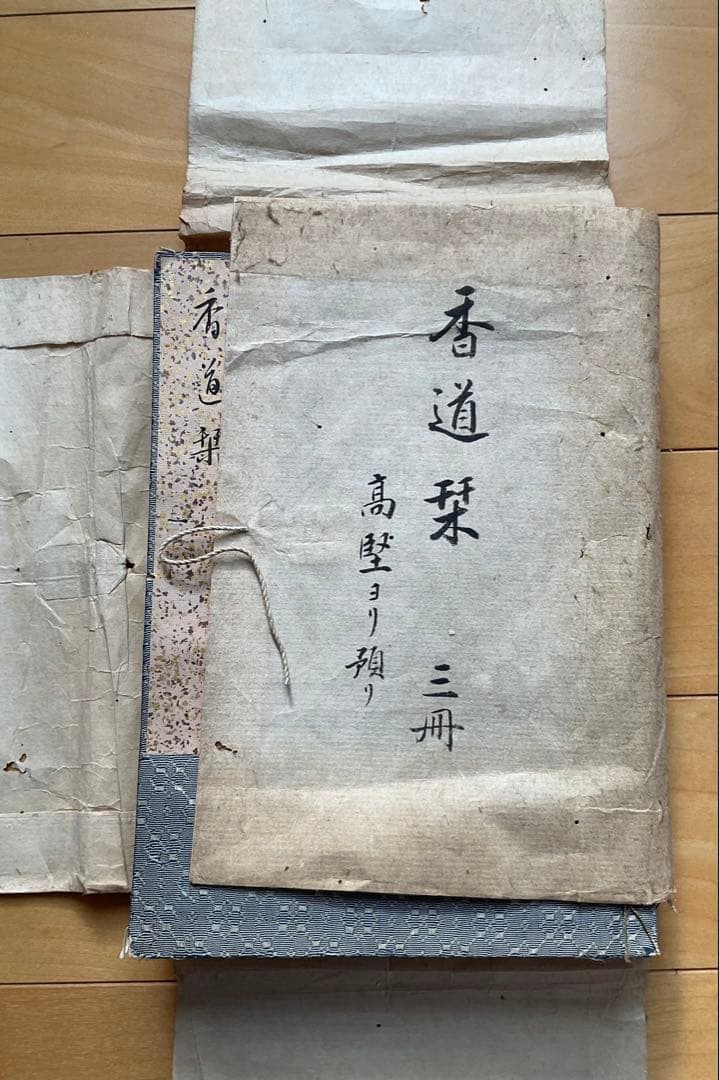 香道栞 三冊
高堅ヨリ預り
香道栞 一